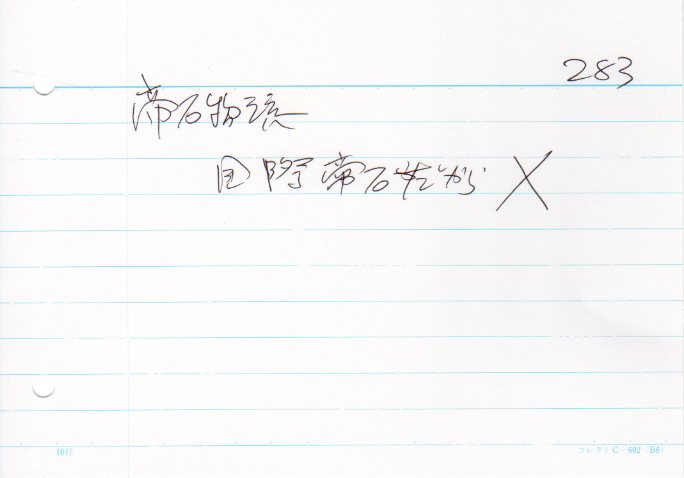 283
帝石物流
国際帝石だから ×
10行
コレクト C-602 (B6)